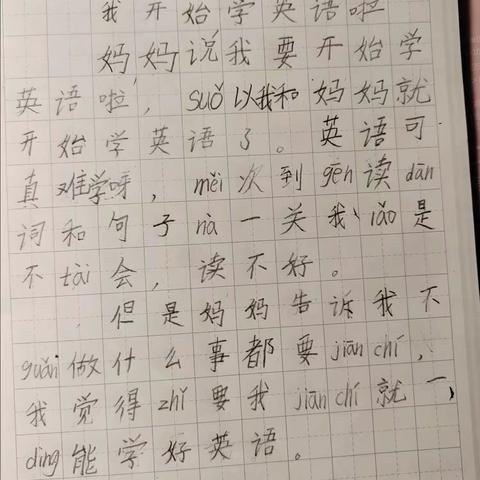 我开始学英语啦
妈妈说我要开始学
英语啦，suǒ以我和妈妈就
开始学英语了。英语可
真难学呀，měi次到gēn读dān
词和句子nà一关我lǎo是
不tài会，读不好。
但是妈妈告诉我不
guǎn做什么事都要jiān chí，
我觉得zhǐ要我jiān chí就一
dìng能学好英语。